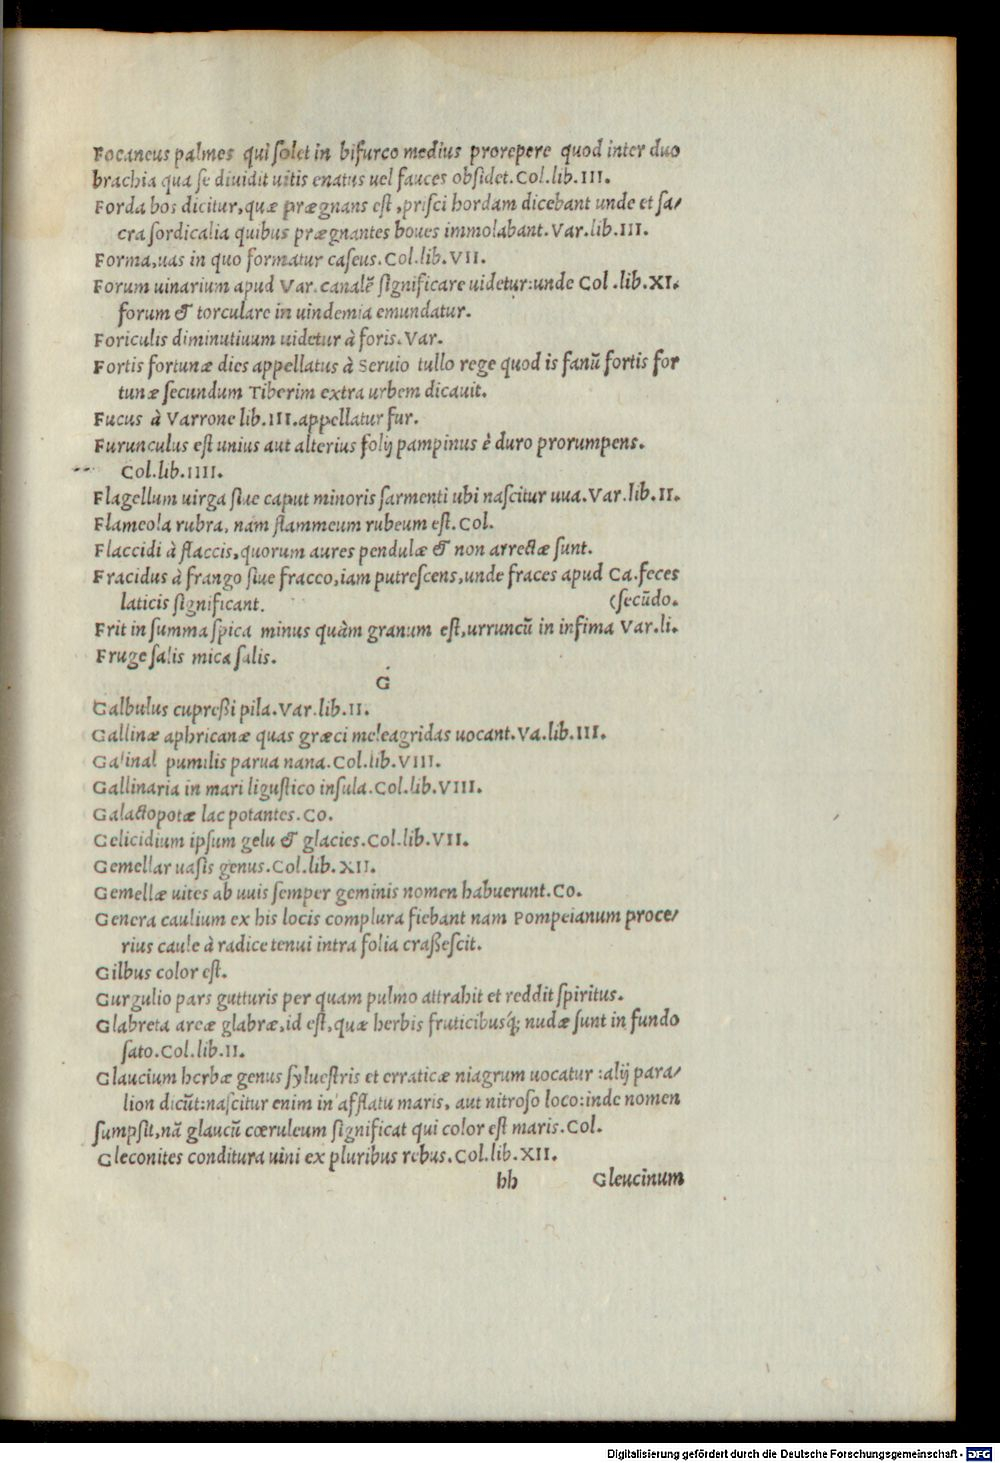 Focaneus palmes qui solet in bifurco medius prorepere quod inter duo
brachia qua se diuidit uitis enatus uel fauces obsidet.Col.lib.III.
Forda bos dicitur,quæ prægnans est,prisci hordam dicebant unde et sa/
cra sordicalia quibus prægnantes boues immolabant.Var.lib.III.
Forma,uas in quo formatur caseus.Col.lib.VII.
Forum uinarium apud Var.canalẽ significare uidetur:unde Col.lib.XI.
forum & torculare in uindemia emundatur.
Foriculis diminutiuum uidetur à foris.Var.
Fortis fortunæ dies appellatus à Seruio tullo rege quod is fanũ fortis for
tunæ secundum Tiberim extra urbem dicauit.
Fucus à Varrone lib.III.appellatur fur.
Furunculus est unius aut alterius folij pampinus è duro prorumpens.
Col.lib.IIII.
Flagellum uirga siue caput minoris sarmenti ubi nascitur uua.Var.lib.II.
Flameola rubra, nam flammeum rubeum est.Col.
Flaccidi à flaccis,quorum aures pendulæ & non arrectæ sunt.
Fracidus à frango siue fracco,iam putrescens,unde fraces apud Ca.feces
laticis significant. (secũdo.
Frit in summa spica minus quàm granum est,urruncũ in infima Var.li.
Fruge salis mica salis.
G
Galbulus cupreßi pila.Var.lib.II.
Gallinæ aphricanæ quas græci meleagridas uocant.Va.lib.III.
Galinal pumilis parua nana.Col.lib.VIII.
Gallinaria in mari ligustico insula.Col.lib.VIII.
Galactopotæ lac potantes.Co.
Gelicidium ipsum gelu & glacies.Col.lib.VII.
Gemellar uasis genus.Col.lib.XII.
Gemellæ uites ab uuis semper geminis nomen habuerunt.Co.
Genera caulium ex his locis complura fiebant nam Pompeianum proce/
rius caule à radice tenui intra folia craßescit.
Gilbus color est.
Gurgulio pars gutturis per quam pulmo attrahit et reddit spiritus.
Glabreta areæ glabræ,id est,quæ herbis fruticibusq́; nudæ sunt in fundo
sato.Col.lib.II.
Glaucium herbæ genus syluestris et erraticæ niagrum uocatur :alij para/
lion dicũt:nascitur enim in afflatu maris, aut nitroso loco:inde nomen
sumpsit,nã glaucũ cœruleum significat qui color est maris.Col.
Gleconites conditura uini ex pluribus rebus.Col.lib.XII.
bb Gleucinum
Digitalisierung gefördert durch die Deutsche Forschungsgemeinschaft - DFG